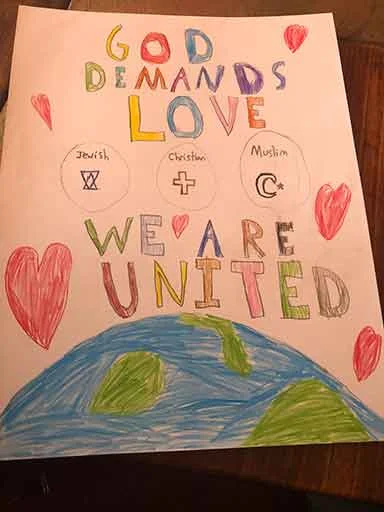 GOD
DEMANDS
LOVE
Jewish Christian Muslim
WE ARE
UNITED